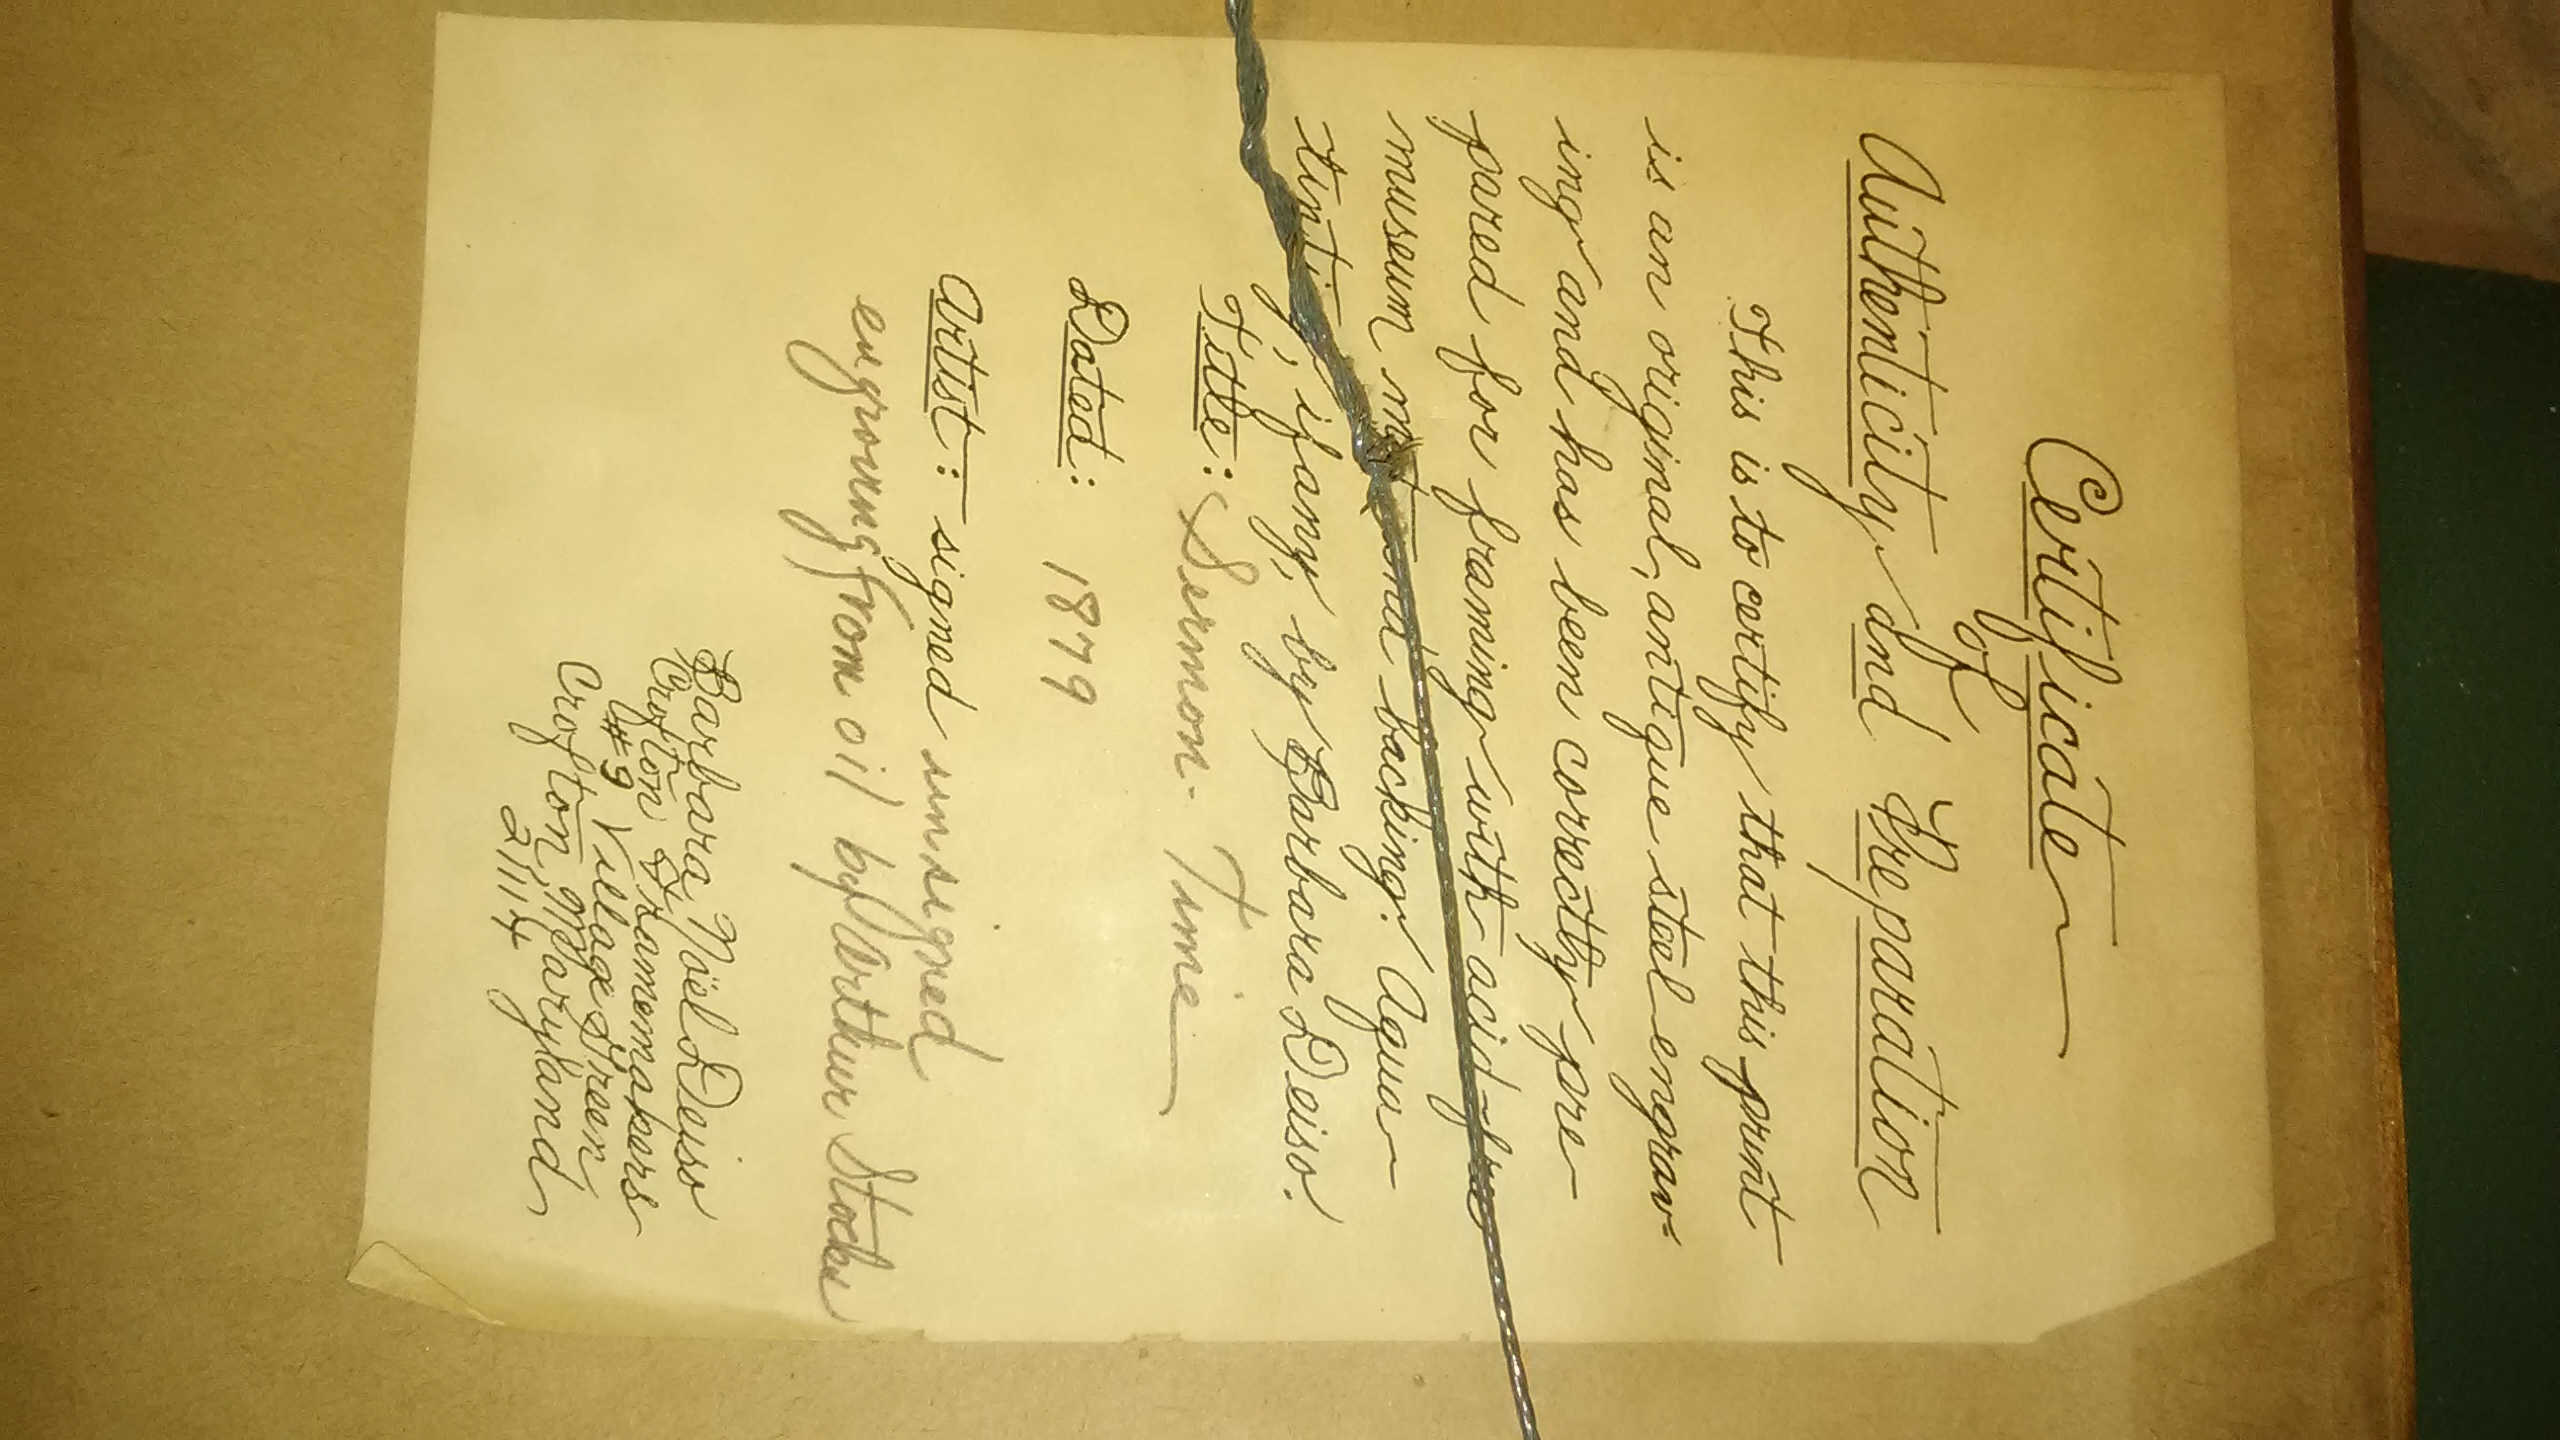 Certificate
of
Authenticity and Preparation
This is to certify that this print
is an original, antique steel engrav-
ing and has been correctly pre
pared for framing with acid free
museum mat and backing. Aqua
tinting, if any, by Barbara Deiso.
Title: Sermon - Time
Dated: 1879
Artist: signed unsigned
engraving from oil by Arthur Stocks
Barbara Nöel Deiso
Crofton Framemakers
#9 Village Green
Crofton, Maryland
21114